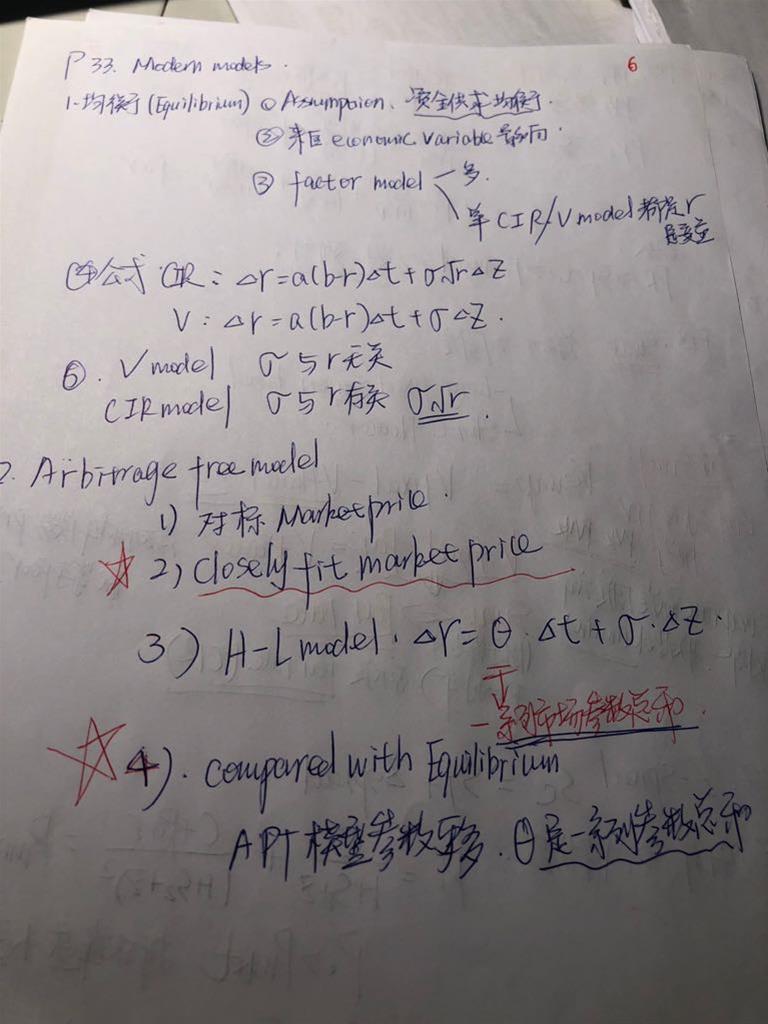 P33. Modern models.
6
1. 均衡 (Equilibrium) ① Assumpaion、资金供求均衡.
② 来自 economic variable 影响.
③ factor model 多.
单 CIR/V model 都是 r
是变量
④公式 CIR: Δr=a(b-r)Δt+σ√rΔZ
V: Δr=a(b-r)Δt+σΔZ.
⑥. V model σ与r无关
CIR model σ与r有关 σ√r.
2. Arbitrage free model
1) 对标 Market price.
☆ 2) Closely fit market price
3) H-L model. Δr=θ·Δt+σ·ΔZ.
一系列市场参数总和.
☆ 4). compared with Equilibrium
APT 模型参数更多. θ是一系列参数总和